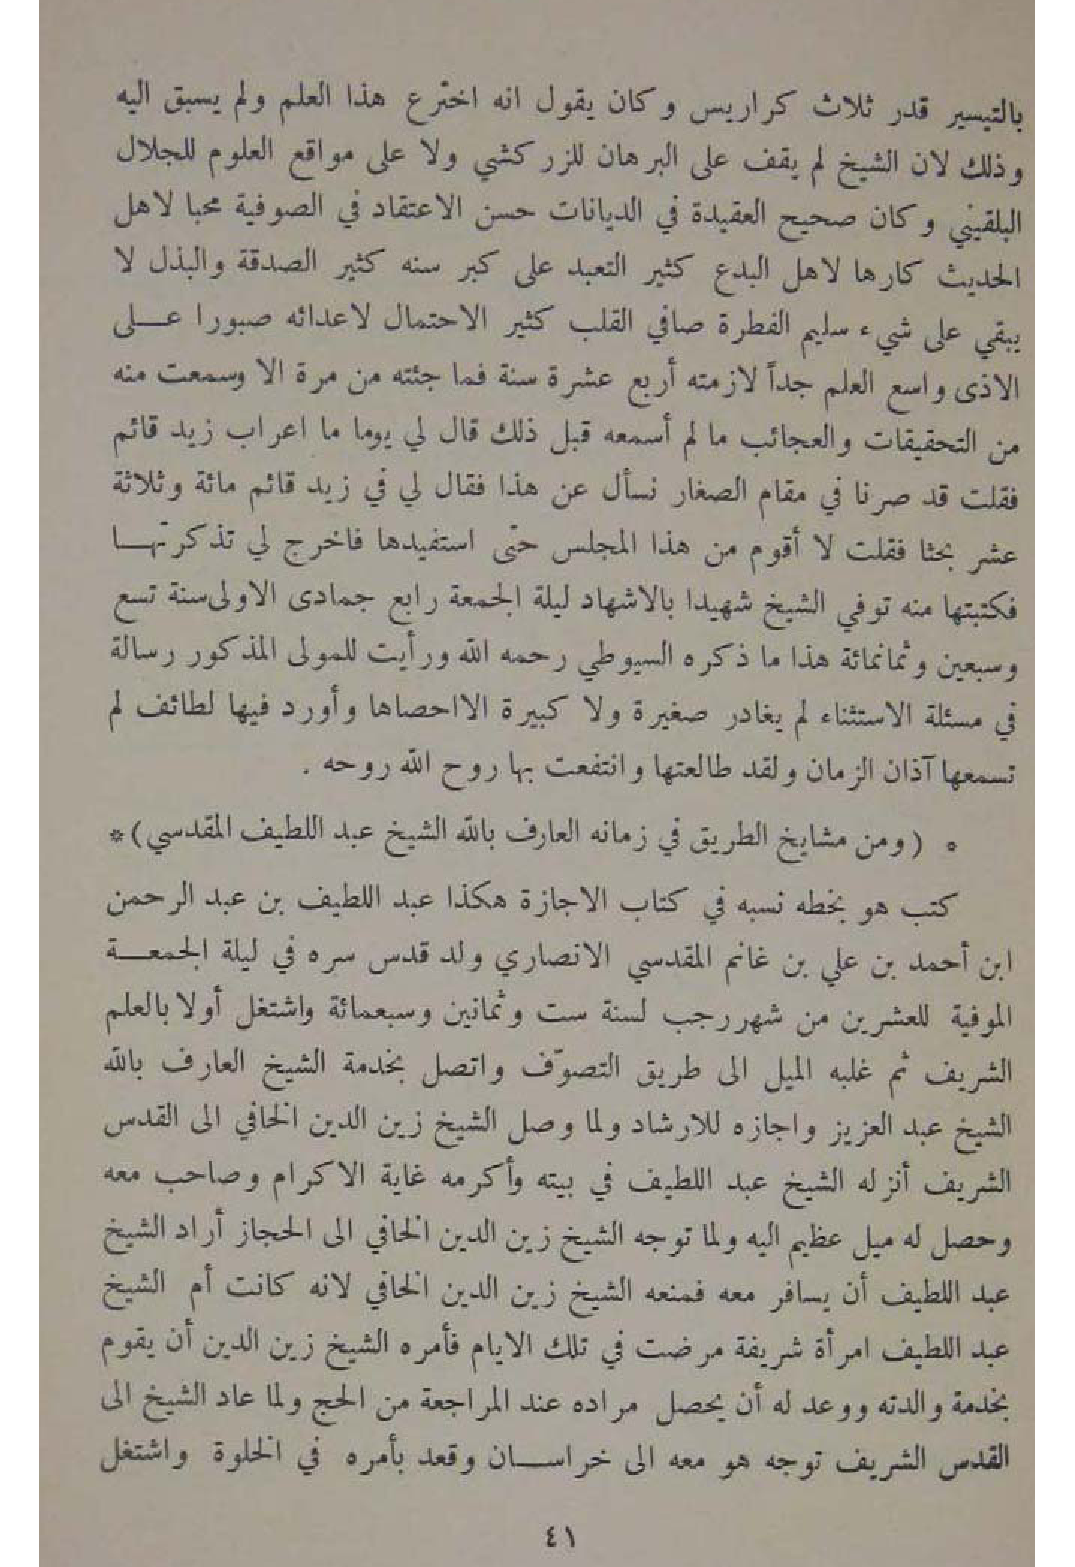 بالتيسير قدر ثلاث كراريس وكان يقول انه اخترع هذا العلم ولم يسبق اليه
وذلك لان الشيخ لم يقف على البرهان للزركشي ولا على مواقع العلوم للجلال
البلقيني وكان صحيح العقيدة في الديانات حسن الاعتقاد في الصوفية محبا لاهل
الحديث كارها لاهل البدع كثير التعبد على كبر سنه كثير الصدقة والبذل لا
يبقي على شيء سليم الفطرة صافي القلب كثير الاحتمال لاعدائه صبورا عــلى
الاذى واسع العلم جداً لازمته أربع عشرة سنة فما جئته من مرة الا وسمعت منه
من التحقيقات والعجائب ما لم أسمعه قبل ذلك قال لي يوما ما اعراب زيد قائم
فقلت قد صرنا في مقام الصغار نسأل عن هذا فقال لي في زيد قائم مائة وثلاثة
عشر بحثا فقلت لا أقوم من هذا المجلس حتى استفيدها فاخرج لي تذكرتهــا
فكتبتها منه توفي الشيخ شهيدا بالاشهاد ليلة الجمعة رابع جمادى الاولى سنة تسع
وسبعين وثمانمائة هذا ما ذكره السيوطي رحمه الله ورأيت للمولى المذكور رسالة
في مسئلة الاستثناء لم يغادر صغيرة ولا كبيرة الا احصاها وأورد فيها لطائف لم
تسمعها آذان الزمان ولقد طالعتها وانتفعت بها روح الله روحه .
* ( ومن مشايخ الطريق في زمانه العارف بالله الشيخ عبد اللطيف المقدسي ) *
كتب هو بخطه نسبه في كتاب الاجازة هكذا عبد اللطيف بن عبد الرحمن
ابن أحمد بن علي بن غانم المقدسي الانصاري ولد قدس سره في ليلة الجمعــة
الموفية للعشرين من شهر رجب لسنة ست وثمانين وسبعمائة واشتغل أولا بالعلم
الشريف ثم غلبه الميل الى طريق التصوّف واتصل بخدمة الشيخ العارف بالله
الشيخ عبد العزيز واجازه للارشاد ولما وصل الشيخ زين الدين الخافي الى القدس
الشريف أنزله الشيخ عبد اللطيف في بيته وأكرمه غاية الاكرام وصاحب معه
وحصل له ميل عظيم اليه ولما توجه الشيخ زين الدين الخافي الى الحجاز أراد الشيخ
عبد اللطيف أن يسافر معه فمنعه الشيخ زين الدين الخافي لانه كانت أم الشيخ
عبد اللطيف امرأة شريفة مرضت في تلك الايام فأمره الشيخ زين الدين أن يقوم
بخدمة والدته ووعد له أن يحصل مراده عند المراجعة من الحج ولما عاد الشيخ الى
القدس الشريف توجه هو معه الى خراســان وقعد بأمره في الخلوة واشتغل
٤١